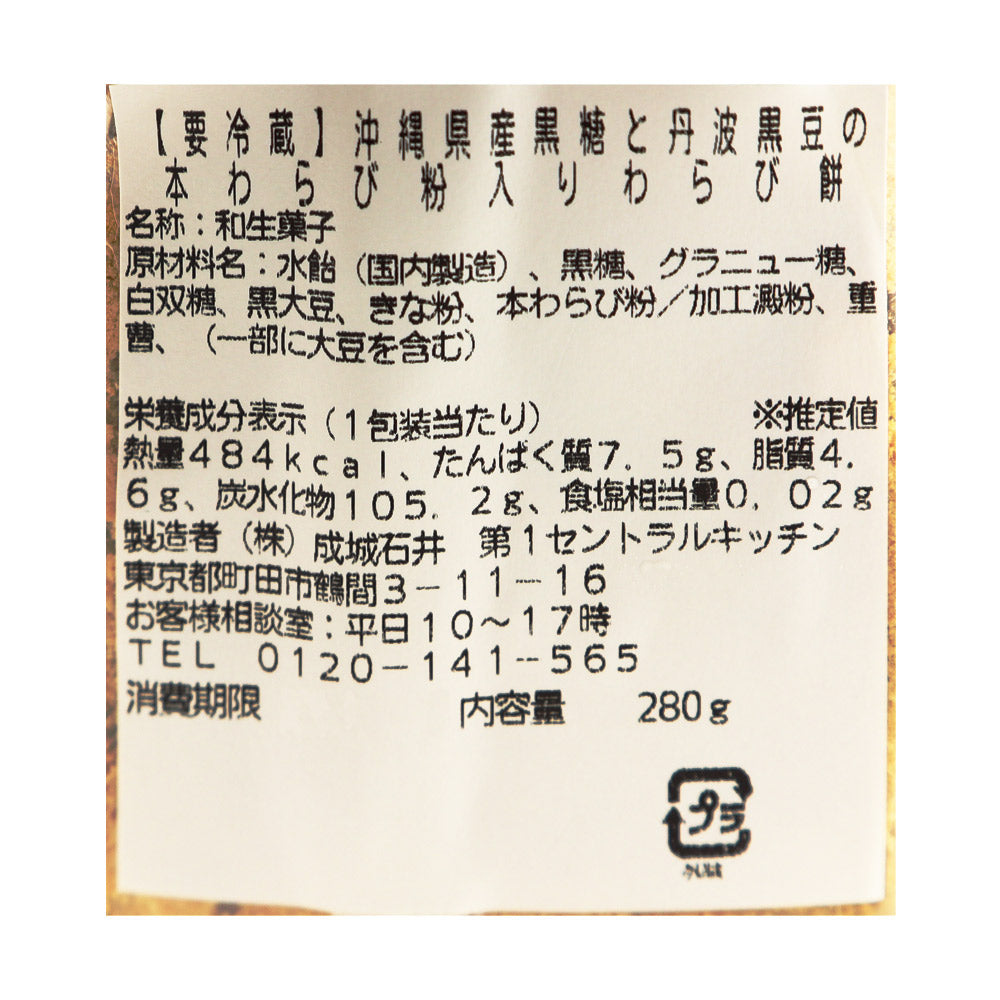 【要冷蔵】沖縄県産黒糖と丹波黒豆の
本わらび粉入りわらび餅
名称：和生菓子
原材料名：水飴（国内製造）、黒糖、グラニュー糖、
白双糖、黒大豆、きな粉、本わらび粉／加工澱粉、重
曹、（一部に大豆を含む）
栄養成分表示（１包装当たり） ※推定値
熱量４８４ｋｃａｌ、たんぱく質７．５ｇ、脂質４．
６ｇ、炭水化物１０５．２ｇ、食塩相当量０．０２ｇ
製造者（株）成城石井　第１セントラルキッチン
東京都町田市鶴間３－１１－１６
お客様相談室：平日１０～１７時
ＴＥＬ　０１２０－１４１－５６５
消費期限 内容量 280ｇ
プラ